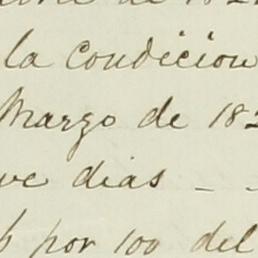 la condicion
Marzo de 182
ve dias - -
6 por 100 del